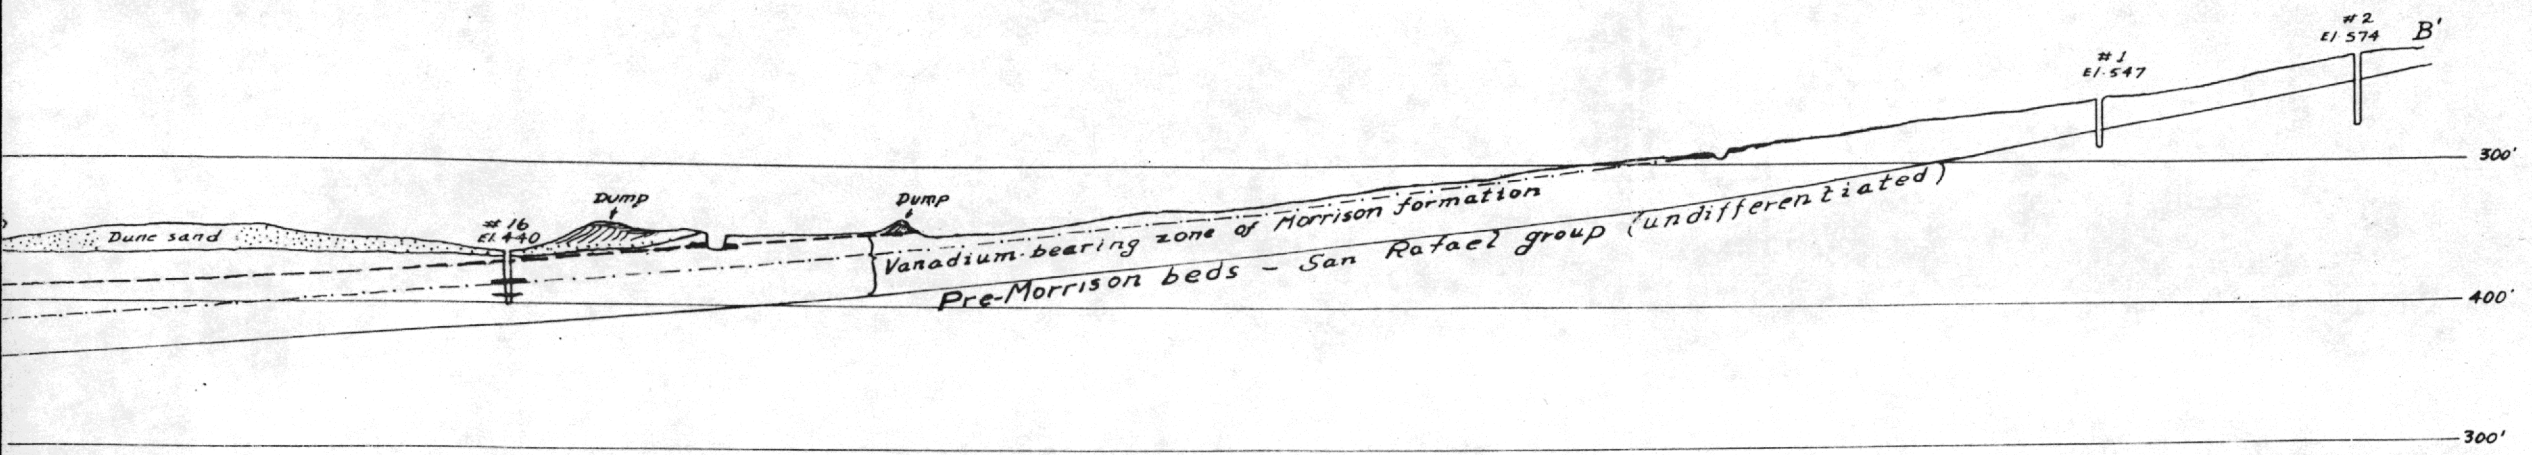 #2
El. 574
B'
#1
El. 547
300'
Dump
Dump
#16
El. 440
Dune sand
Vanadium-bearing zone of Morrison formation
Pre-Morrison beds - San Rafael group (undifferentiated)
400'
300'